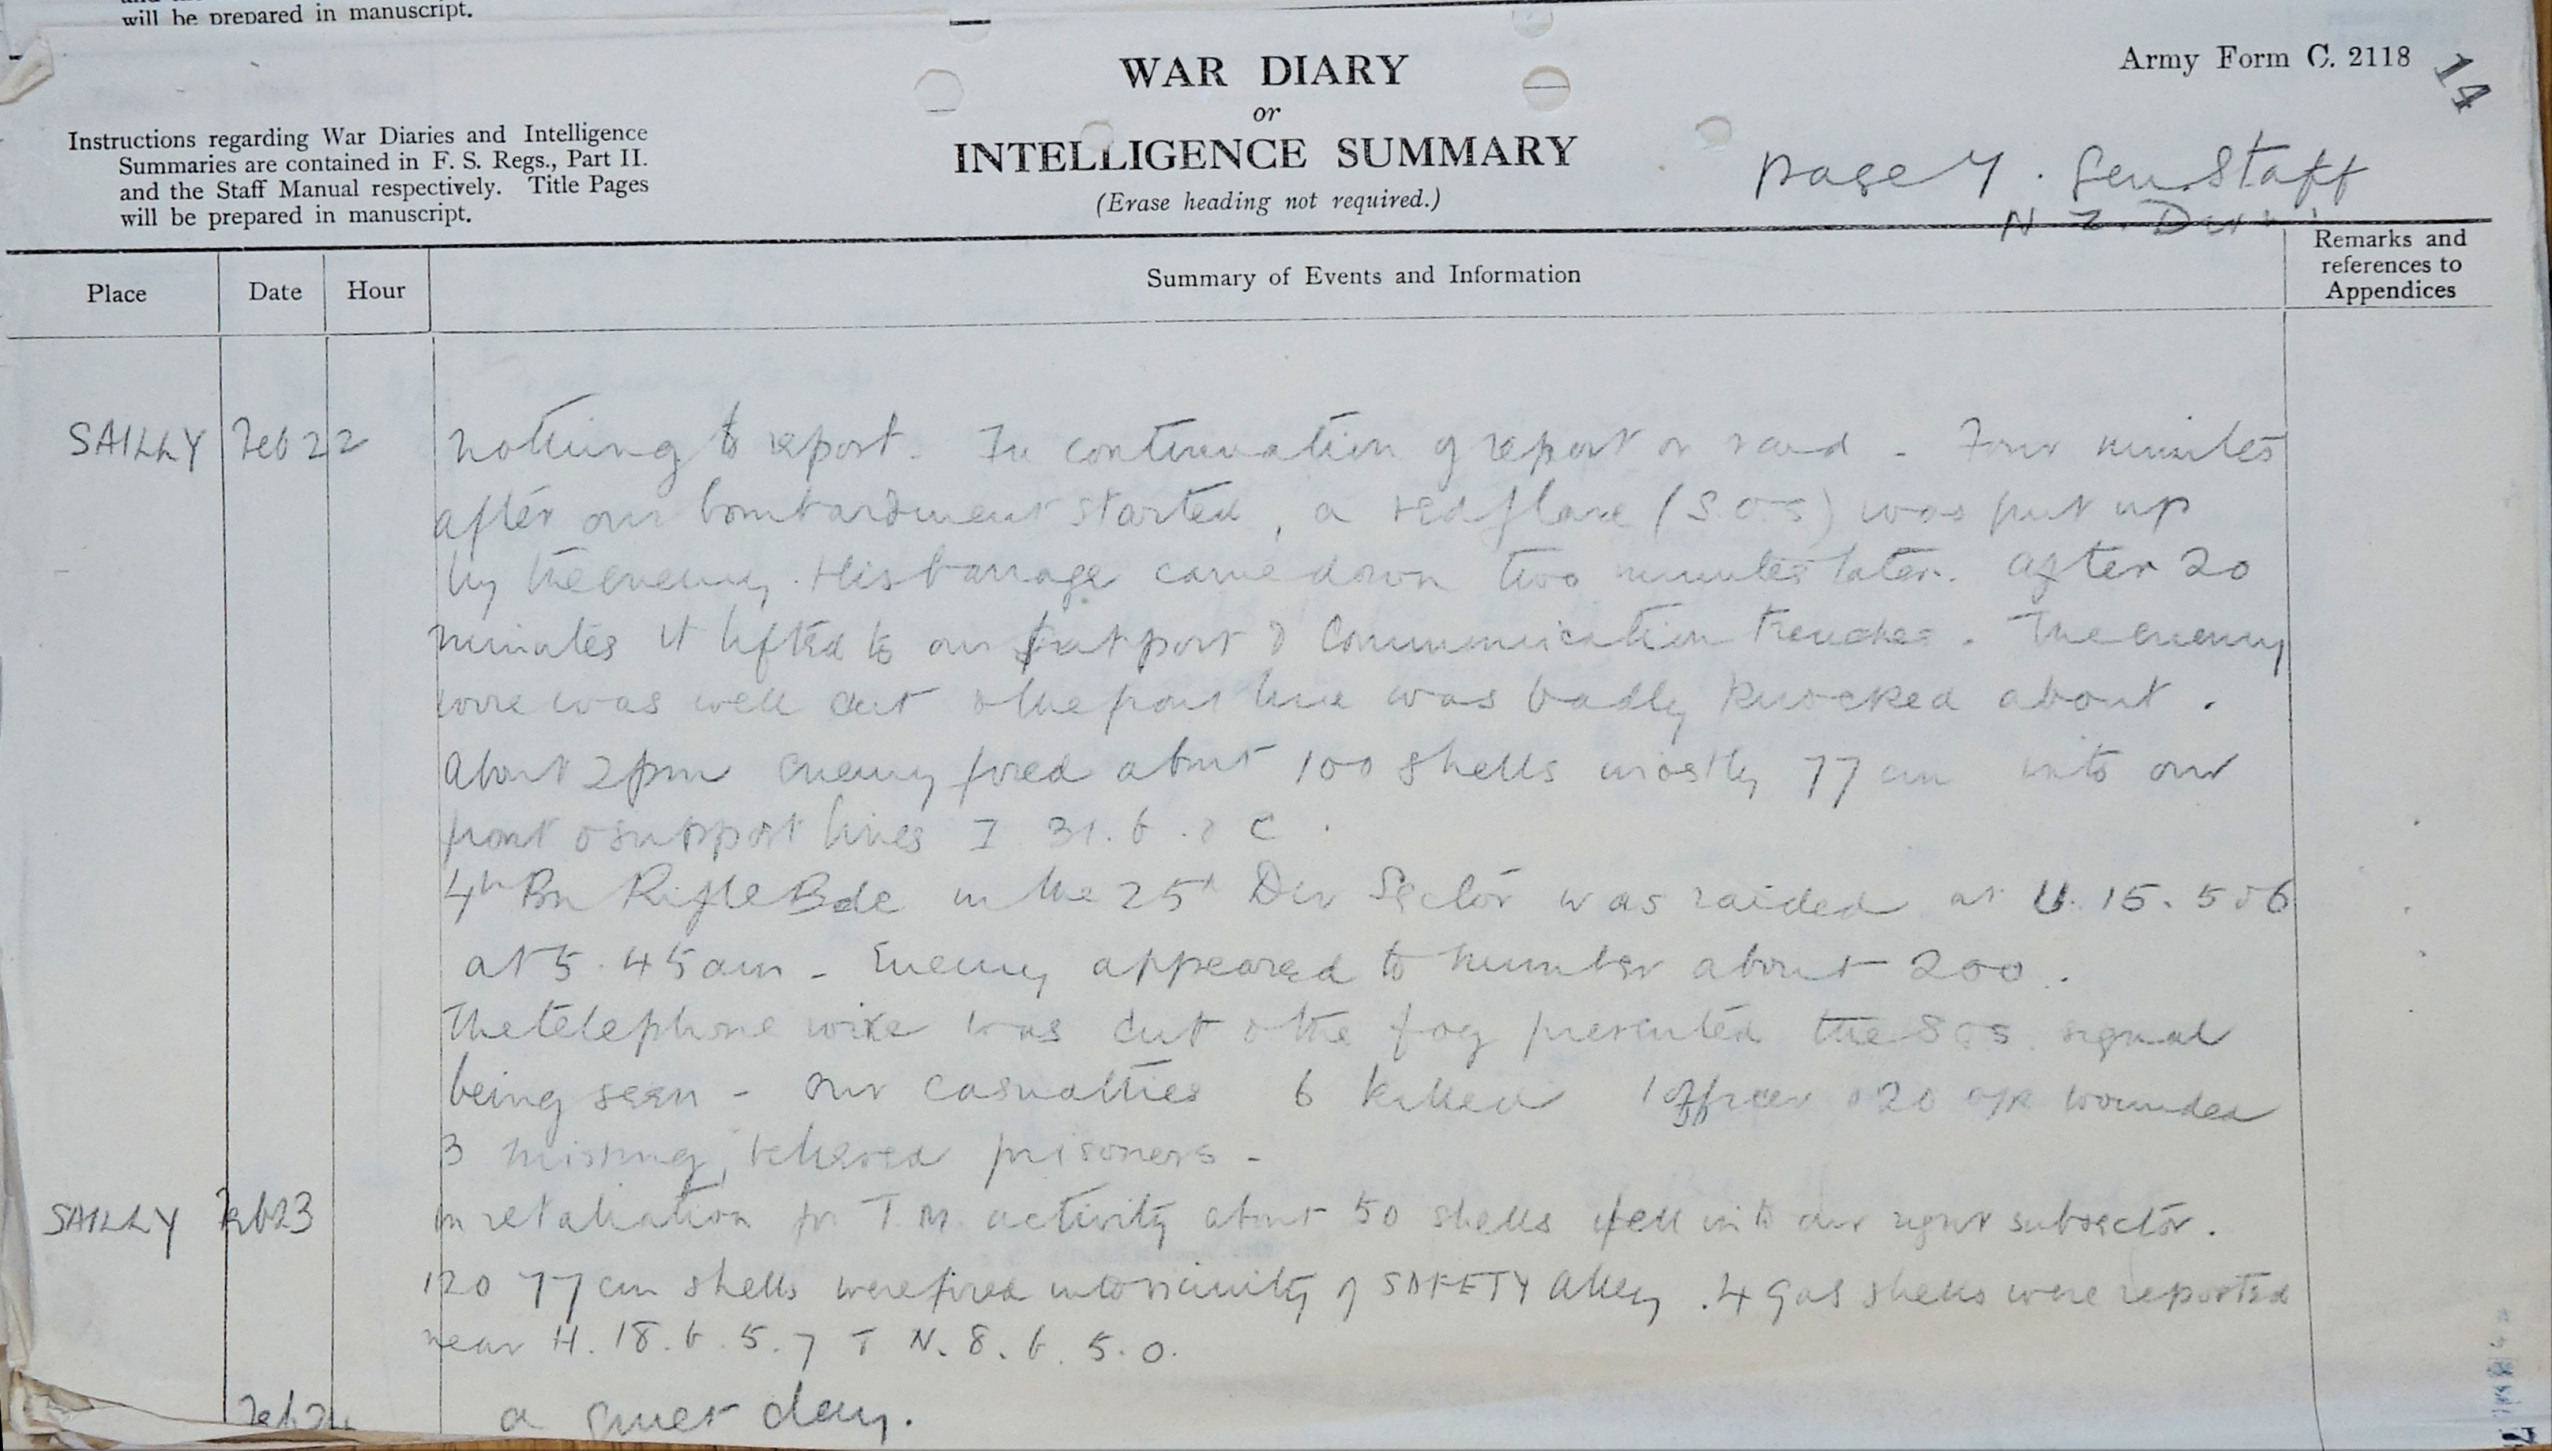 will be prepared in manuscript.
Army Form C. 2118
14
WAR DIARY
or
INTELLIGENCE SUMMARY
(Erase heading not required.)
Instructions regarding War Diaries and Intelligence
Summaries are contained in F. S. Regs., Part II.
and the Staff Manual respectively. Title Pages
will be prepared in manuscript.
page 7. Gen. Staff
N Z. Div
Place
Date
Hour
Summary of Events and Information
Remarks and
references to
Appendices
SAILLY Feb 22 nothing to report. In continuation of report on raid - Four minutes
after our bombardment started, a red flare (S.O.S) was put up
by the enemy. His barrage came down two minutes later. After 20
minutes it lifted to our support & Communication trenches. The enemy
wire was well cut & the front line was badly knocked about.
About 2pm enemy fired about 100 shells mostly 77 cm into our
front & support lines I 31. b. & C.
4th Bn Rifle Bde in the 25th Div Sector was raided at U. 15. 5 & 6
at 5.45am - Enemy appeared to number about 200.
The telephone wire was cut & the fog prevented the SOS signal
being seen - our casualties 6 killed 1 Officer & 20 o/R wounded
3 missing, believed prisoners -
SAILLY Feb 23 In retaliation for T.M. activity about 50 shells fell into our right subsector.
120 77 cm shells were fired into vicinity of SAFETY Alley. 4 gas shells were reported
near H. 18. b. 5. 7 & N. 8. b. 5. 0.
Feb 24 a quiet day.